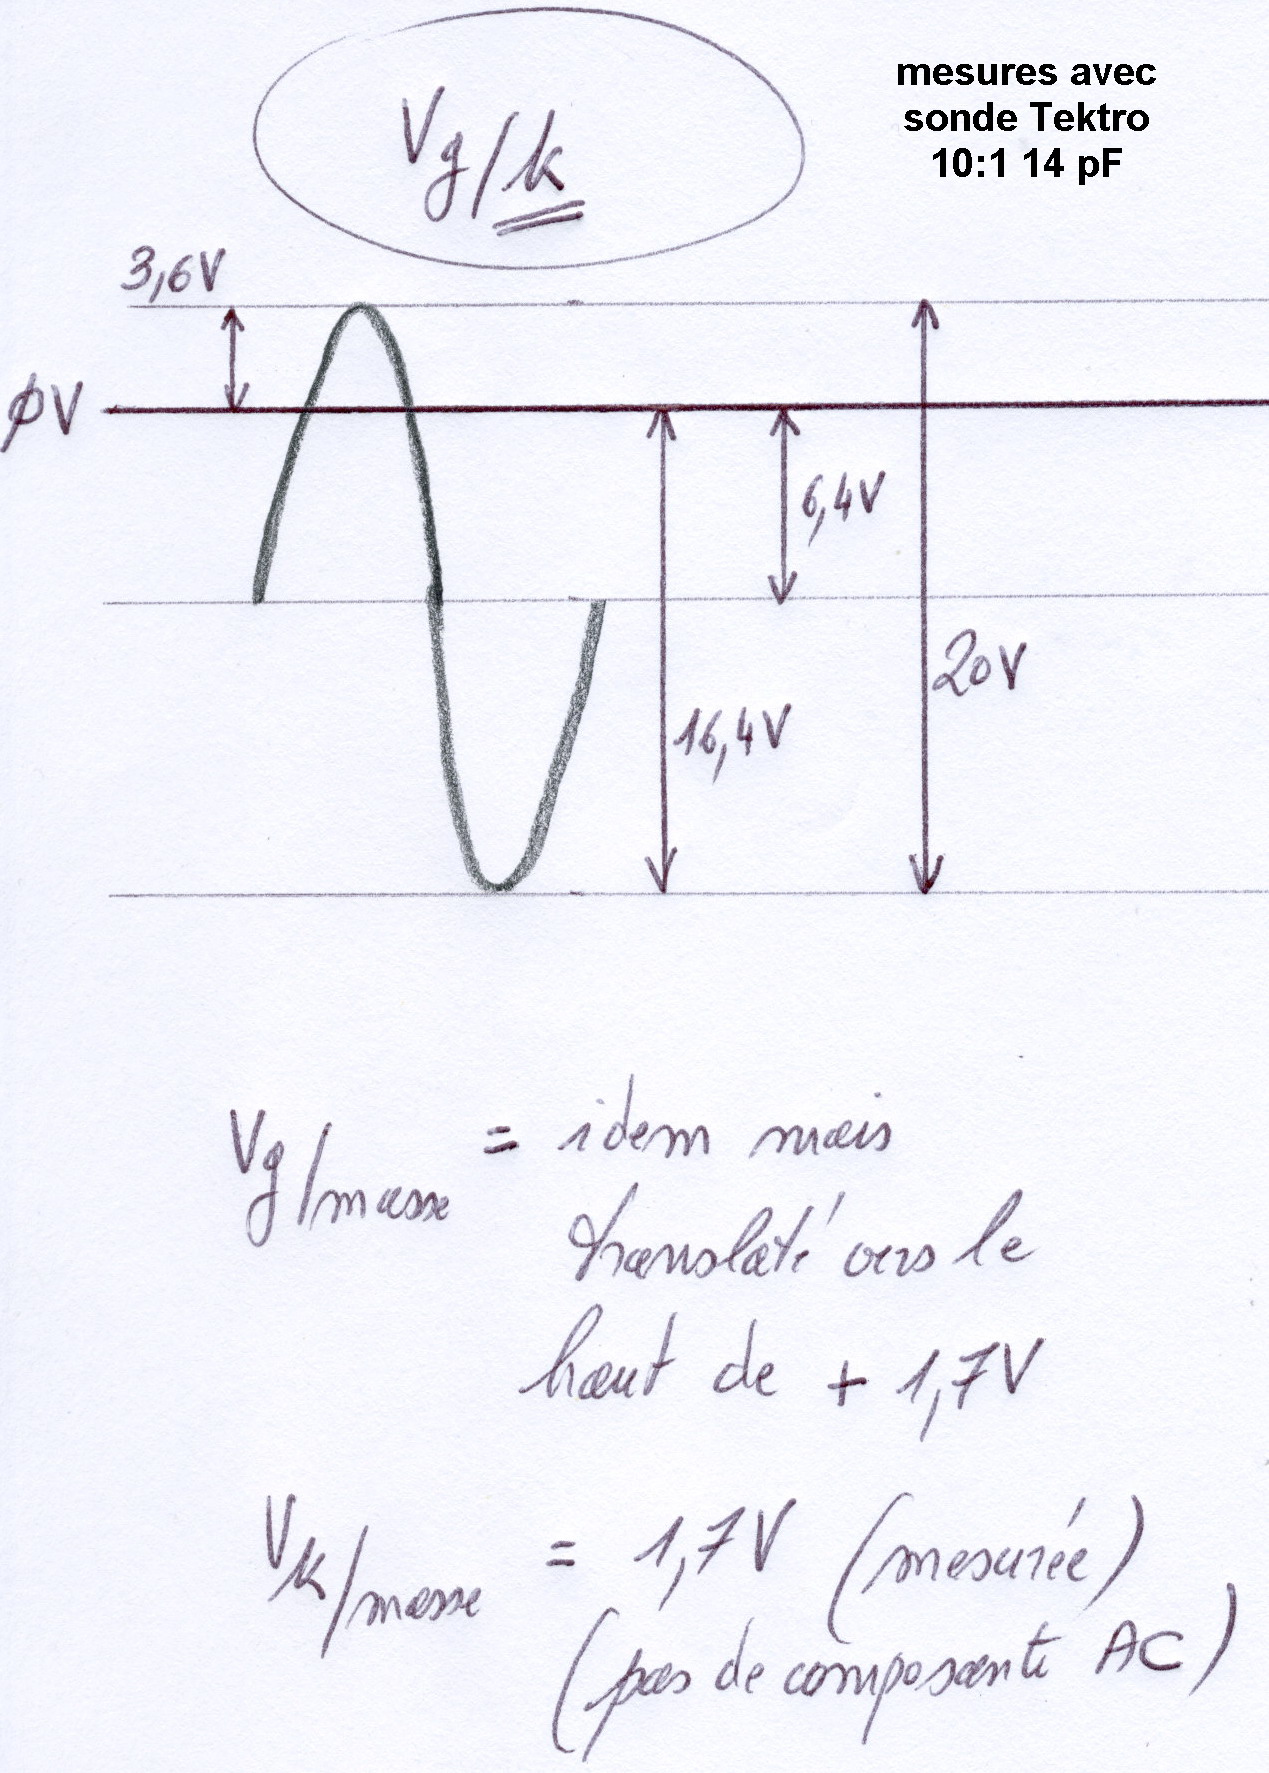 Vg/k
mesures avec
sonde Tektro
10:1 14 pF
3,6V
øV
6,4V
20V
16,4V
Vg/masse = idem mais
translaté vers le
haut de + 1,7V
Vk/masse = 1,7V (mesurée)
(pas de composante AC)